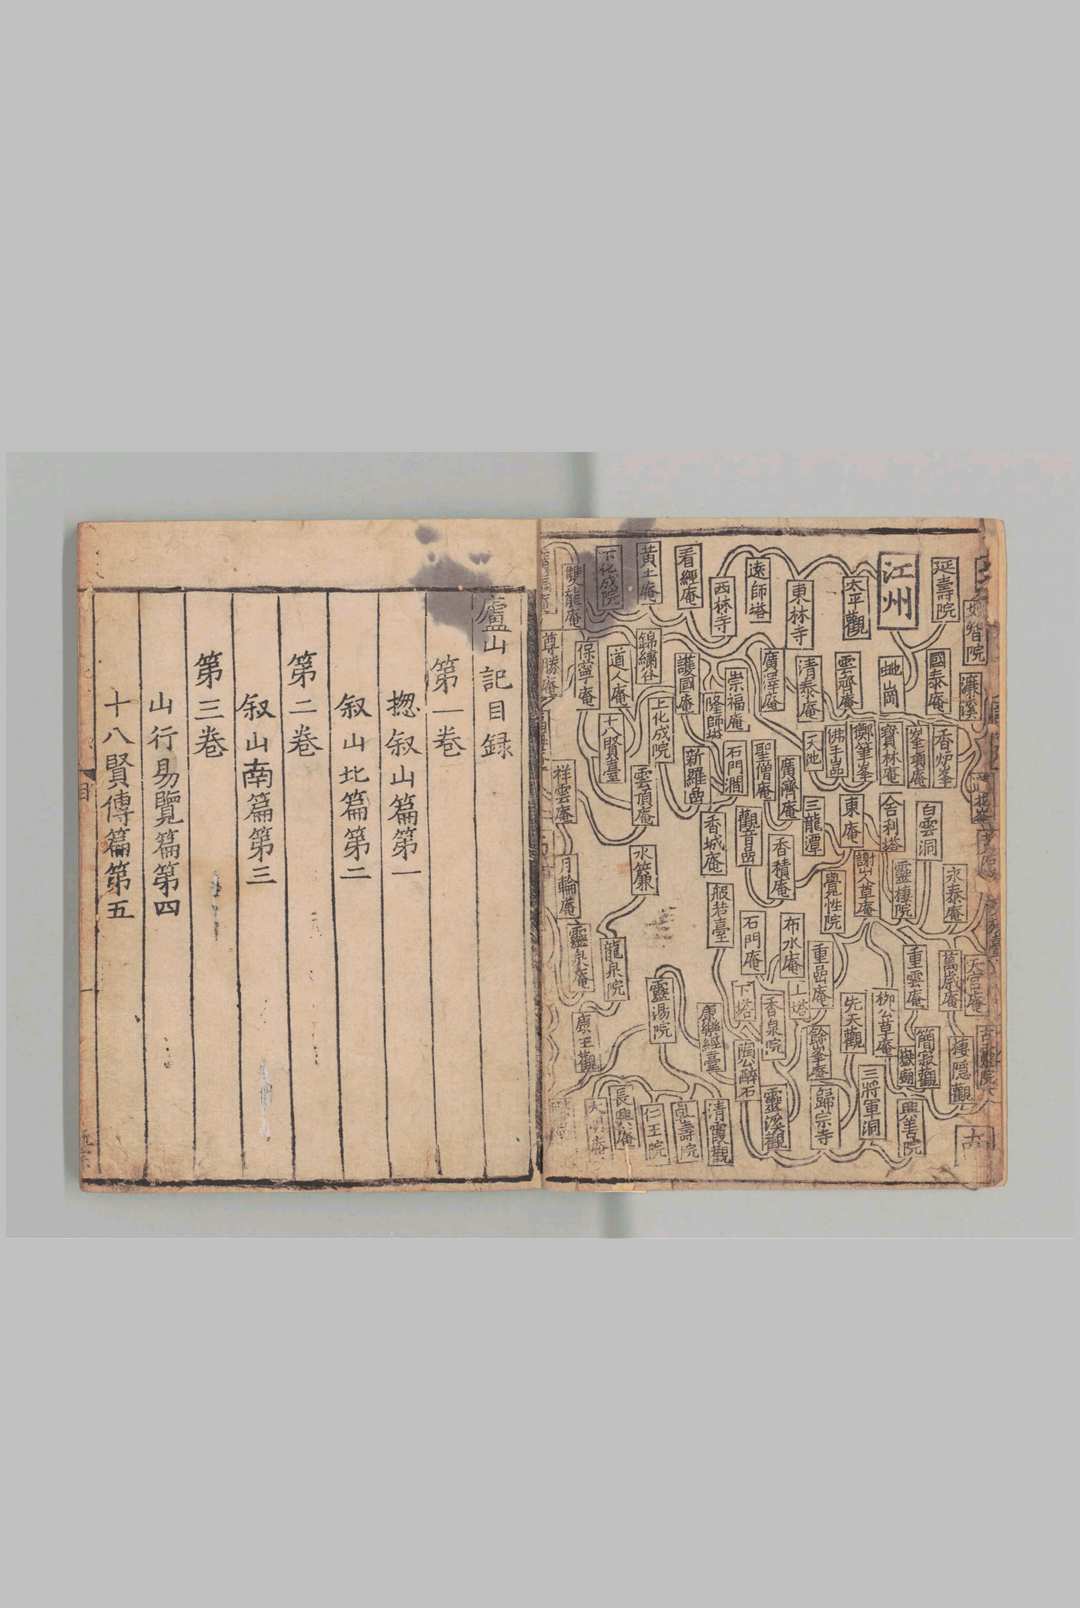 延壽院
江州
太平觀
東林寺
遠師塔
西林寺
看經庵
黃土庵
下化成院
雙龍庵
妙智院
濂溪
國泰庵
雲齊庵
清泰庵
廣澤庵
崇福庵
隆師塔
護國庵
錦繡谷
道人庵
保寧庵
尊勝庵
香炉峯
峯頂庵
寶林庵
擲筆峯
佛手嵒
天池
聖僧庵
石門澗
新羅嵒
上化成院
十八賢臺
祥雲庵
雲頂庵
廣濟庵
三龍潭
東庵
舍利塔
白雲洞
觀音嵒
香城庵
香積庵
水簾
月輪庵
謝山人草庵
靈棲院
永泰庵
覺性院
般若臺
石門庵
布水庵
重嵒庵
重雲庵
萬歲庵
天宮庵
靈泉庵
龍泉院
靈湯院
康樂經臺
下塔
香泉院
上塔
先天觀
柳公草庵
簡寂觀
棲隱觀
康王觀
陶公醉石
餘峯庵
三將軍洞
嶽廟
長興庵
仁王院
清霞觀
靈溪觀
歸宗寺
廬山記目録
第一巻
揔叙山篇第一
叙山北篇第二
第二巻
叙山南篇第三
第三巻
山行易覽篇第四
十八賢傳篇第五
目